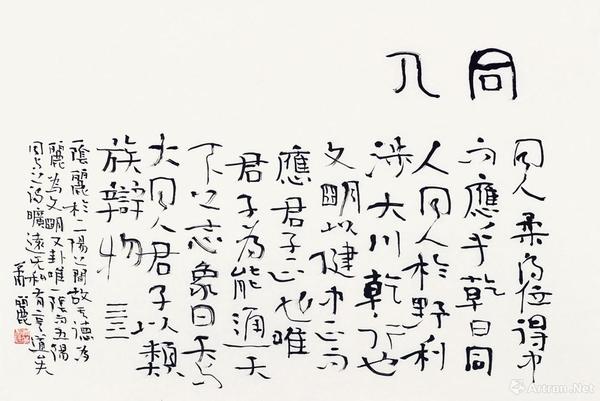 同人
同人柔得位得中
而應乎乾曰同
人同人於野利
涉大川乾行也
文明以健中正而
應君子正也唯
君子為能通天
下之志象曰天與
火同人君子以類
族辯物
一陰麗於二陽之間故其德為
麗為文明又卦唯一陰而五陽
同與之為曠遠無私有亨道矣
Artron.Net